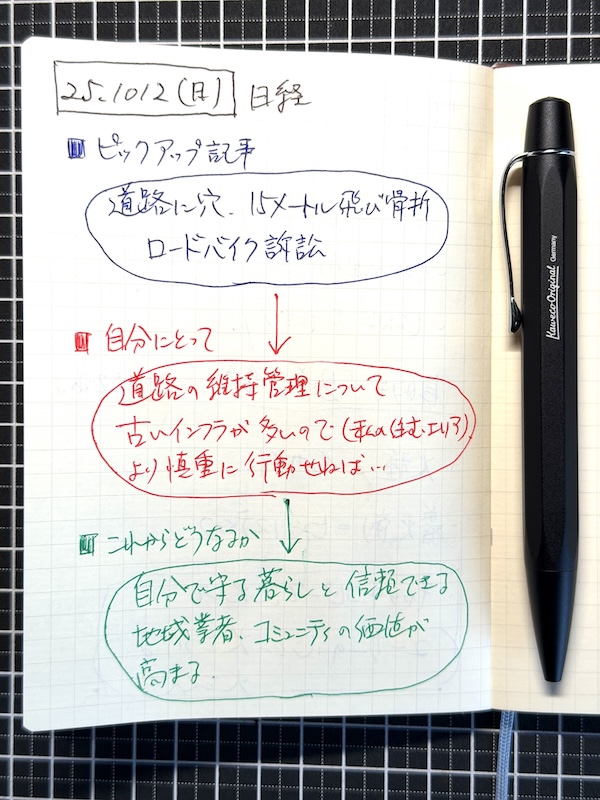 25.1012(日) 日経
ピックアップ記事
道路に穴、15メートル飛び骨折
ロードバイク訴訟
自分にとって
道路の維持管理について
古いインフラが多いので(私の住むエリア)
より慎重に行動せねば…
これからどうなるか
自分で守る暮らしと信頼できる
地域業者、コミュニティの価値が
高まる.
Kaweco Original Germany